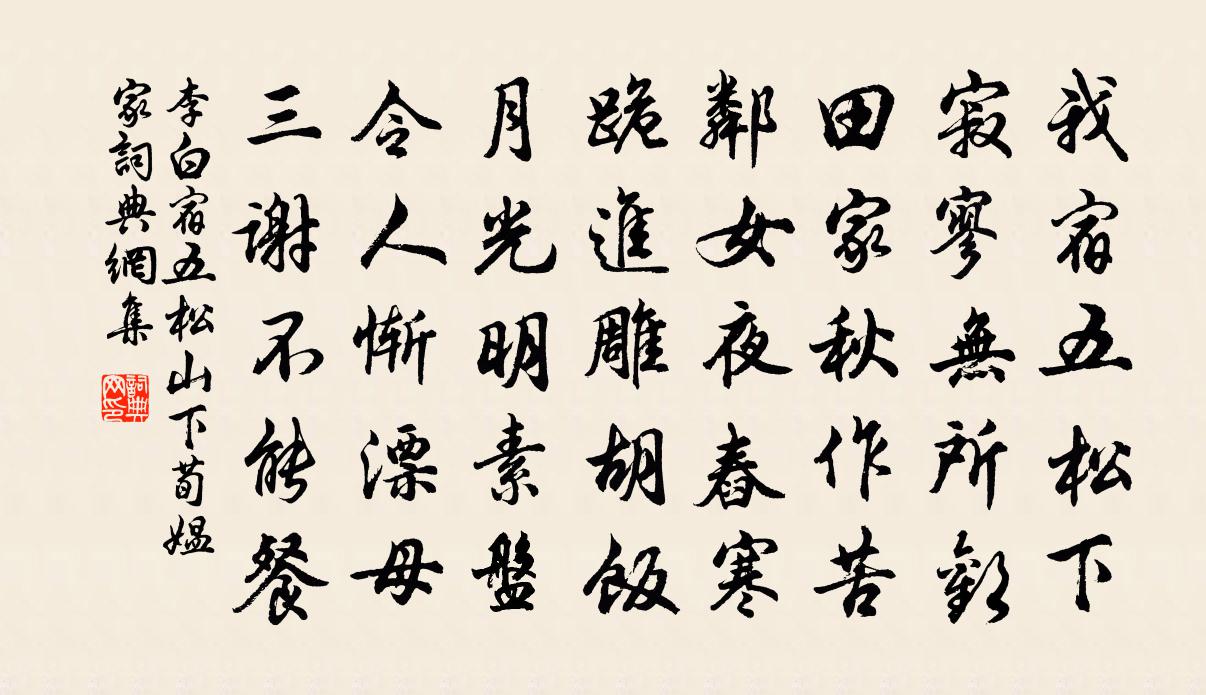 我宿五松下
寂寥無所歡
田家秋作苦
鄰女夜舂寒
跪進雕胡飯
月光明素盤
令人慚漂母
三謝不能餐
李白宿五松山下荀媼
家詞典網集
詞典網印